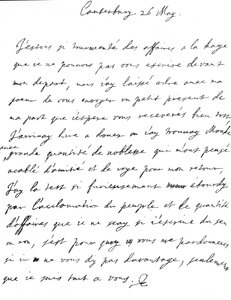 Canterbury 26 May.
J'estois si tourmenté des affaires a la haye
que je ne pouvois pas vous escrire devant
mon depart, mais j'ay laissé ordre avec ma
soeur de vous envoyer un petit present de
ma part que j'espere vous receverés bien tost
J'arrivay hier a dover ou j'ay trouvay Monk
avec grande quantité de noblesse qui m'ont pensé
acablé d'amitié et de joye pour mon retour.
J'ay la test si furieusement etourdy
par l'acclamation du peuple et le quantité
d'affaires que je ne scay si j'escrive du sen
ou non, s'est pour quoy vous me pardonneres
si je ne vous dy pas davantage, seulement
que je suis tout a vous. C